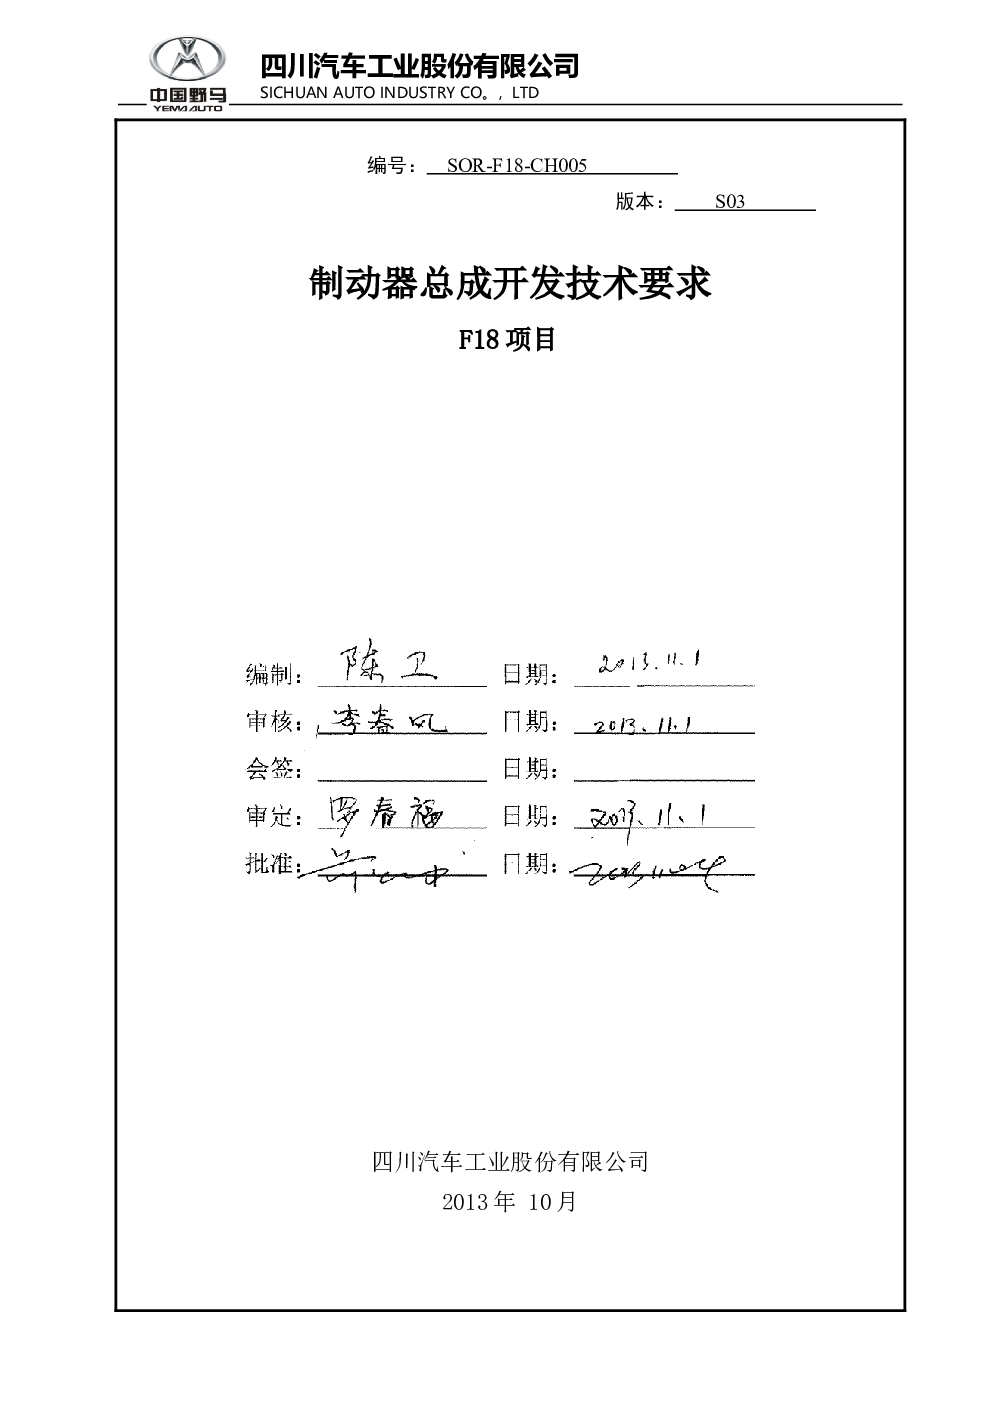 四川汽车工业股份有限公司
SICHUAN AUTO INDUSTRY CO。, LTD
中国野马
YEMA AUTO
编号： SOR-F18-CH005
版本： S03
制动器总成开发技术要求
F18 项目
编制： 陈卫 日期： 2013.11.1
审核： 李春风 日期： 2013.11.1
会签： 日期：
审定： 罗春福 日期： 2013.11.1
批准： 日期：
四川汽车工业股份有限公司
2013 年 10 月